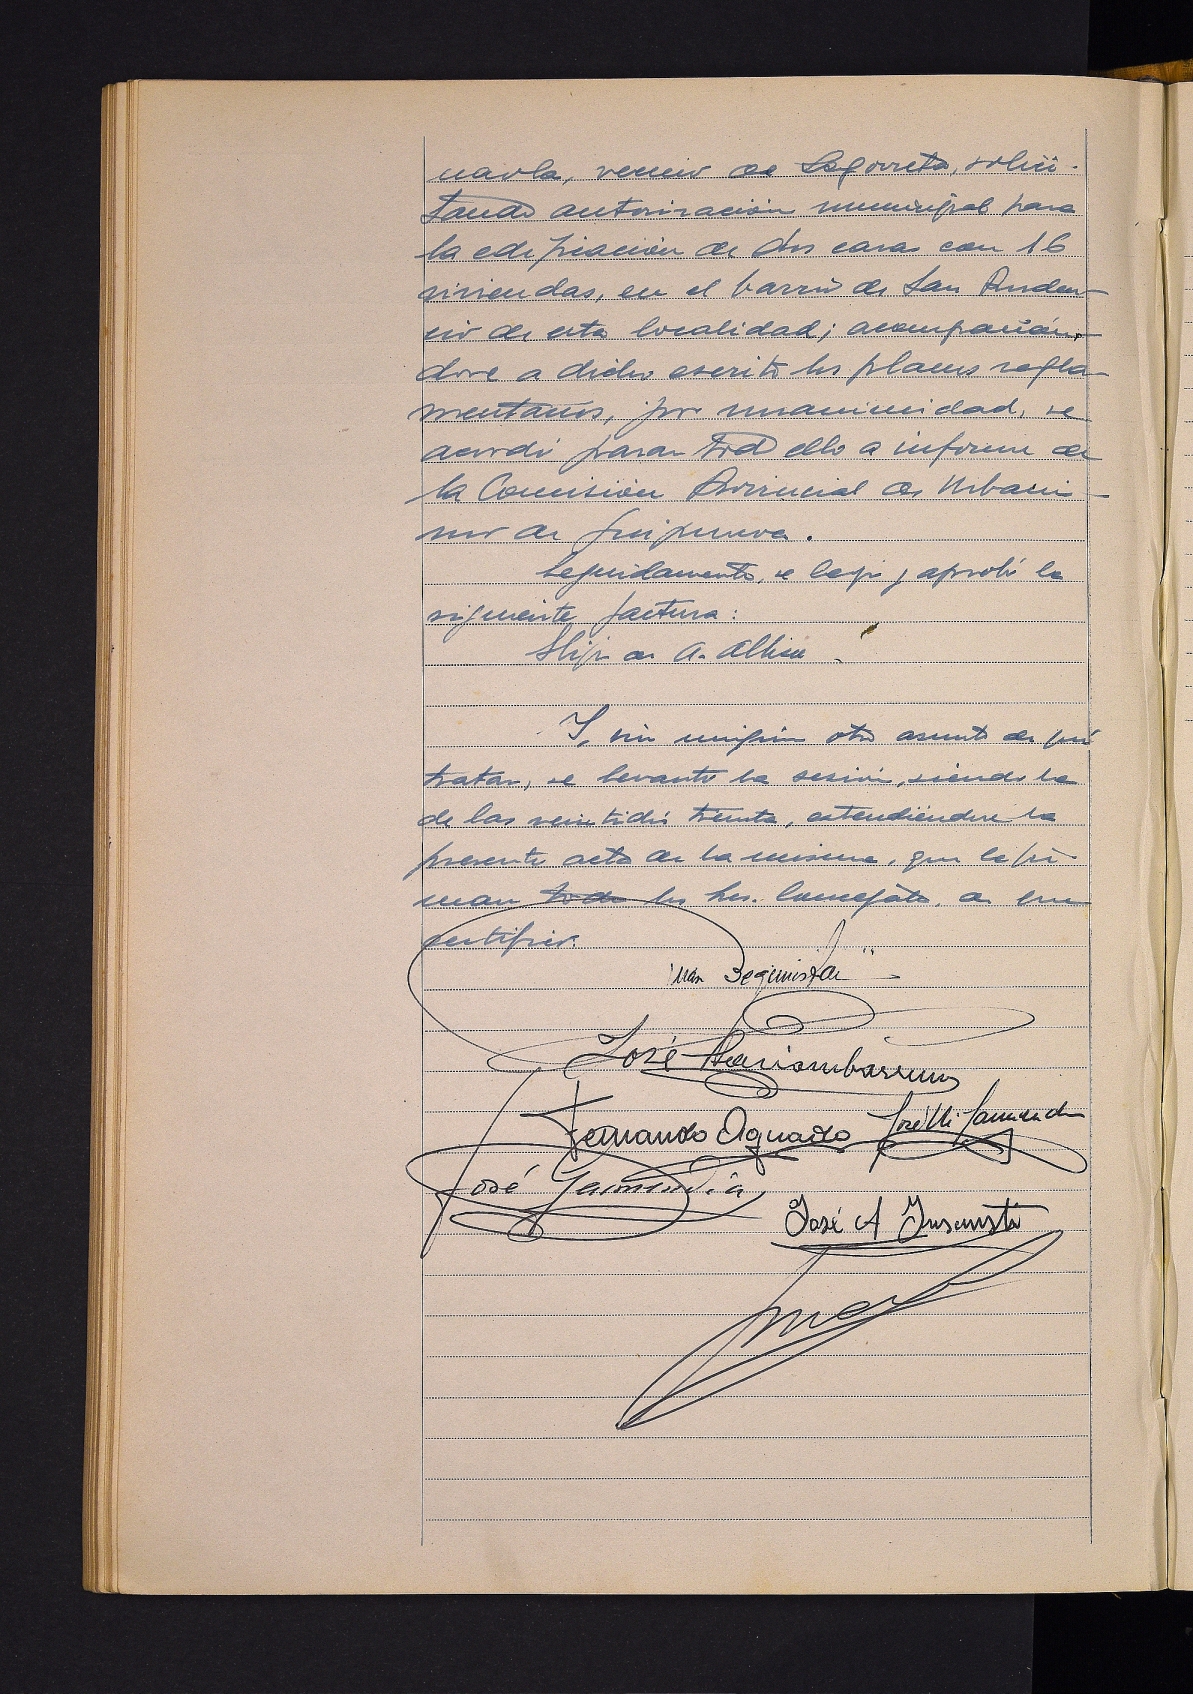 naola, vecino de Legorreta, solici-
tando autorización municipal para
la edificación de dos casas con 16
viviendas, en el barrio de San Pruden-
cio de esta localidad; acompañán-
dose a dicho escrito los planos regla-
mentarios, por unanimidad, se
acordó pasar todo ello a informe de
la Comisión Provincial de Urbani-
smo de Guipuzcoa.
Seguidamente, se leyó y aprobó la
siguiente factura:
de A. Albisu.
Y, sin ningún otro asunto de que
tratar, se levantó la sesión, siendo la
de las veintidós treinta, extendiéndose la
presente acta de la misma, que la fir-
man todos los Sres. Concejales, de que
certifico.
Juan Beguiristain
José
Fernando Aguado José Mi Garmendia
José Garmendia
José A Insausti